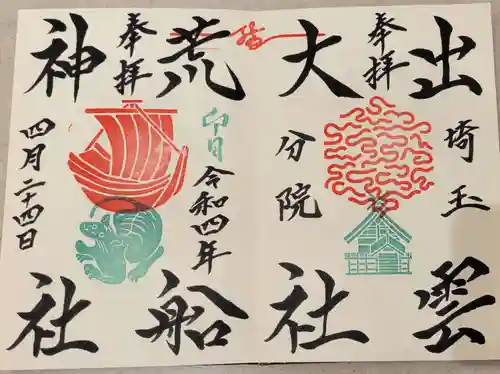 奉拝
出雲
埼玉
大社
分院
奉拝
荒船
卯日
令和四年
神社
四月二十四日